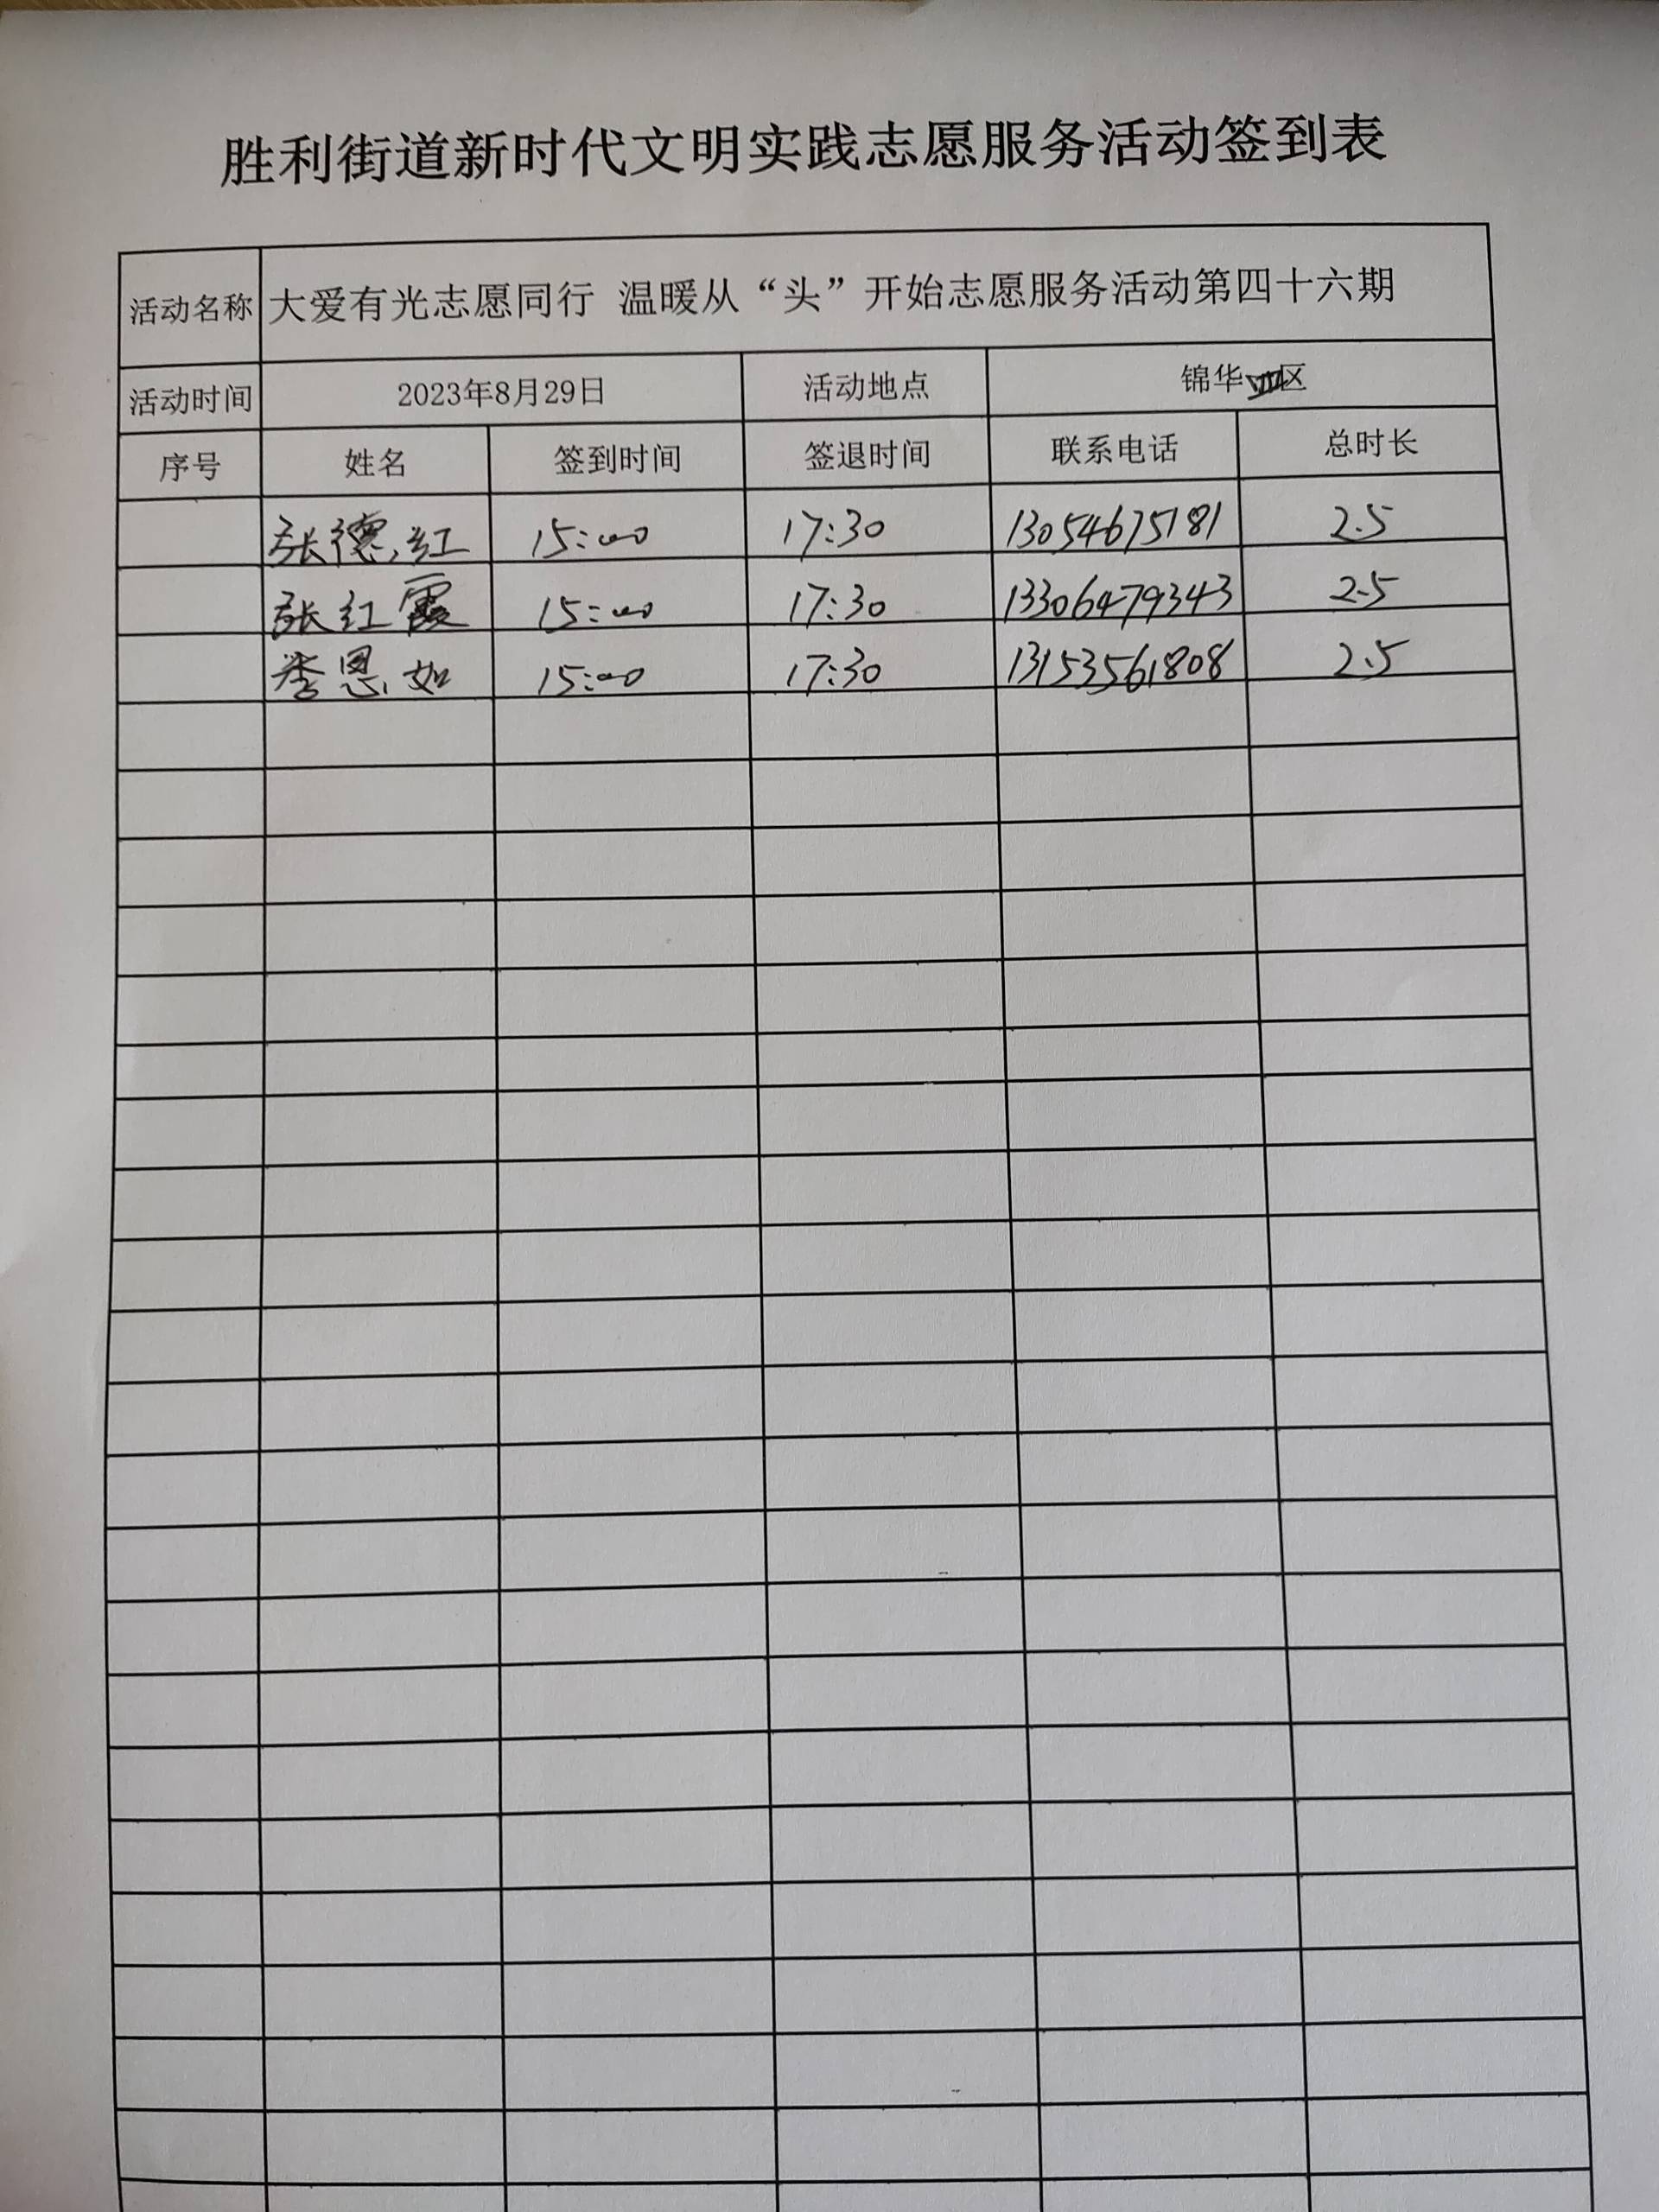 胜利街道新时代文明实践志愿服务活动签到表
活动名称 大爱有光志愿同行 温暖从“头”开始志愿服务活动第四十六期
活动时间 2023年8月29日 活动地点 锦华区
序号 姓名 签到时间 签退时间 联系电话 总时长
张德红 15:00 17:30 13054675181 2.5
张红霞 15:00 17:30 13306479343 2.5
李恩如 15:00 17:30 13153561808 2.5